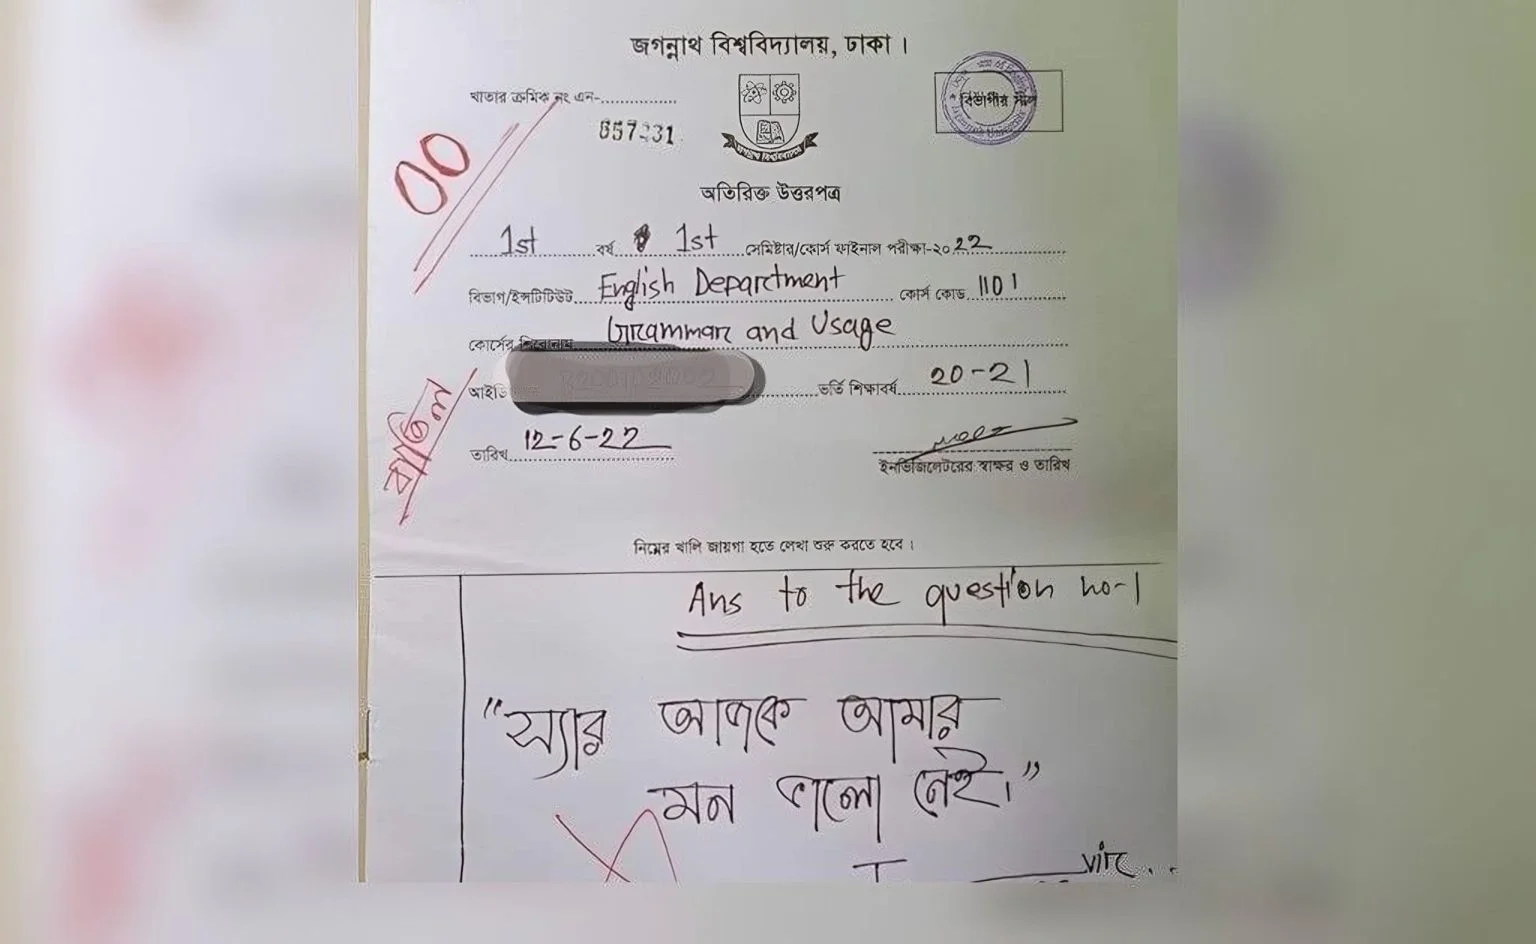 জগন্নাথ বিশ্ববিদ্যালয়, ঢাকা।
খাতার ক্রমিক নং এন-
বিভাগীয় সীল
জগন্নাথ বিশ্ববিদ্যালয়
00
অতিরিক্ত উত্তরপত্র
1st বর্ষ 1st সেমিষ্টার/কোর্স ফাইনাল পরীক্ষা-২০22
বিভাগ/ইন্সটিটিউট English Department কোর্স কোড 1101
কোর্সের Grammar and Usage
আইডি ভর্তি শিক্ষাবর্ষ 20-21
বাতিল
তারিখ 12-6-22
ইনভিজিলেটরের স্বাক্ষর ও তারিখ
নিম্নের খালি জায়গা হতে লেখা শুরু করতে হবে।
Ans to the question no-1
"স্যার আজকে আমার
মন ভালো নেই।"